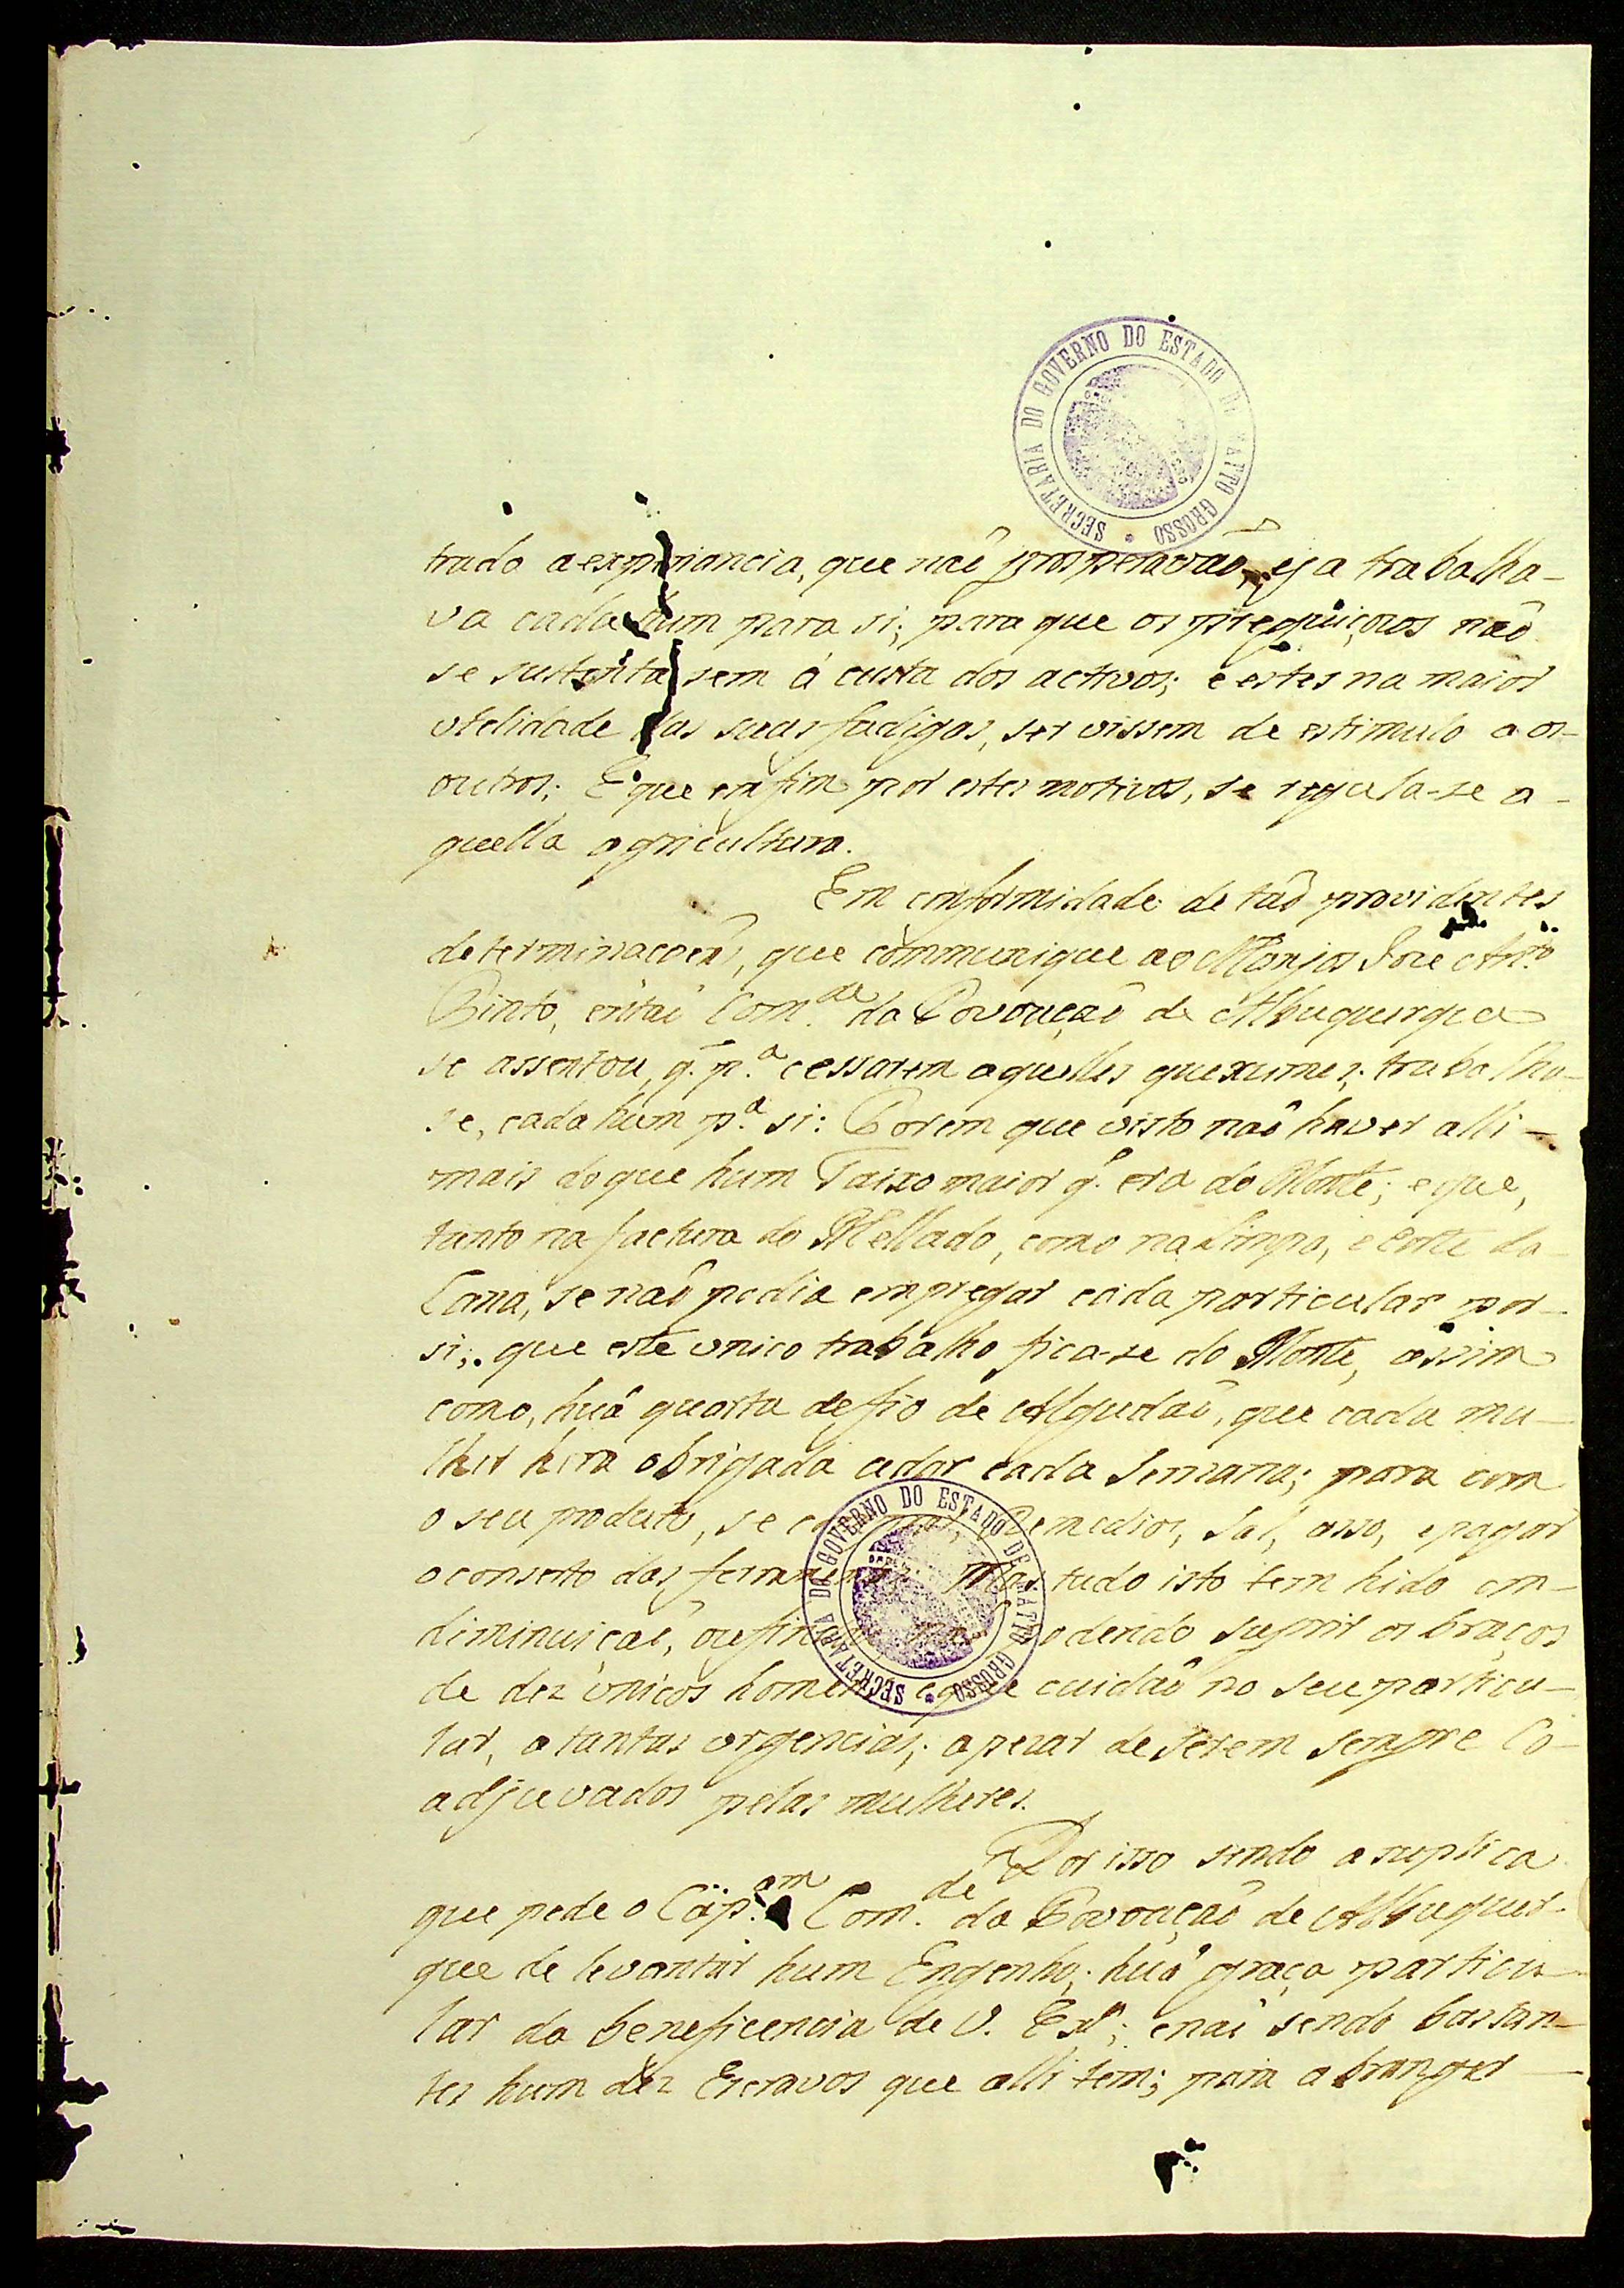 SECRETARIA DO GOVERNO DO ESTADO DE MATTO GROSSO
trado a experiancia, que naõ prosperavaõ, ej a trabalha-
va cada hum para si; para que os preguiçozos naõ
se sustentasem á custa dos activos; e estes na maior
utelidade das suas fadigas, servissem de estimulo a os-
outros; E que enfim por estes motivos, se regula-se a-
quella agricultura.
Em conformidade de taõ providentes
determinaçoens, que communiquei ao Marjor Joze Ant.º
Pinto, entaõ Com.de da Povoaçaõ de Albuquerque
se assentou, q. p.a cessarem aquelles quexumes; trabalha-
se, cada hum p.a si: Porem que visto naõ haver alli-
mais do que hum Taixo maior q. era do Monte; e que,
tanto na factura do Mellado, como na Limpa, e Corte da-
Cana, se naõ podia empregar cada particular por-
si; que este unico trabalho fica-se do Monte, assim
como, huã quarta de fio de Algudaõ, que cada mu-
lher hera obrigada adar cada Semana; para com
o seu produto, se Remedios, Sal, asso, e pagar
o conserto das ferramentas: Mas tudo isto tem hido em-
diminuiçaõ, ou podendo suprir os braços
de dez unicos homens, e que cuidaõ no seu particu-
lar, a tantas urgencias; apezar de serem sempre Co-
adjuvados pelas mulheres.
Por isso sendo a suplica
que pede o Cap.am Com.de da Povoaçaõ de Albuquer-
que de levantar hum Engenho; huã graça particu-
lar da beneficencia de V. Ex.a; e naõ sendo bastan-
tes hum dez Escravos que alli tem; para abranger-
SECRETARIA DO GOVERNO DO ESTADO DE MATTO GROSSO